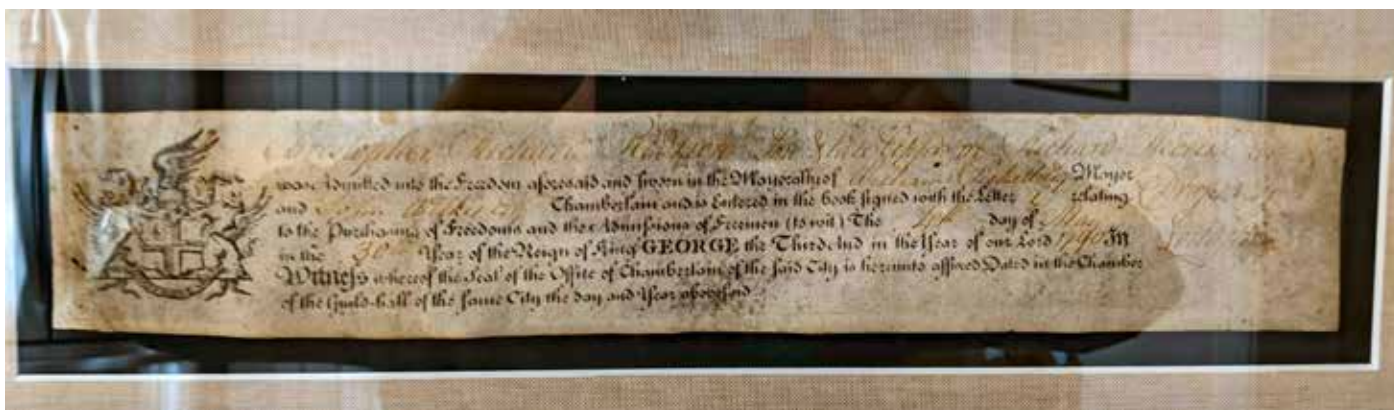 Christopher Richard
was Admitted into the Freedom aforesaid and sworn in the Mayoralty of William Mayor
and John Chamberlain and is Entered in the book signed with the Letter relating
to the Purchasing of Freedoms and the Admissions of Freemen (to wit) The day of
in the 30th Year of the Reign of King GEORGE the Third And in the Year of our Lord 1790 In
Witness whereof the Seal of the Office of Chamberlain of the said City is hereunto affixed Dated in the Chamber
of the Guild-hall of the same City the day and Year abovesaid